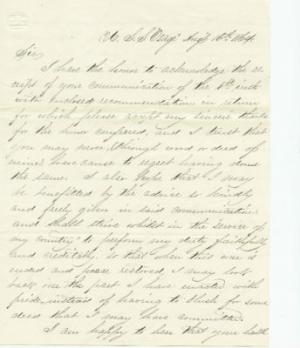 U. S. S. Aug 16th 1864.
Sir,
I have the honor to acknowledge the re
ceipt of your communication of the 6th inst
with enclosed recommendation in return
for which please accept my sincere thanks
for the honor conferred, and I trust that
you may never (through word or deed of
mine) have cause to regret having done
the same. I also hope that I may
be benefitted by the advice so kindly
and freely given in said communication
and shall strive whilst in the service of
my country to perform my duty faithfully
and creditably, so that when this war is
ended and peace restored, I may look
back over the past I have enacted with
pride, instead of having to blush for some
deed that I may have committed.
I am happy to hear that your health